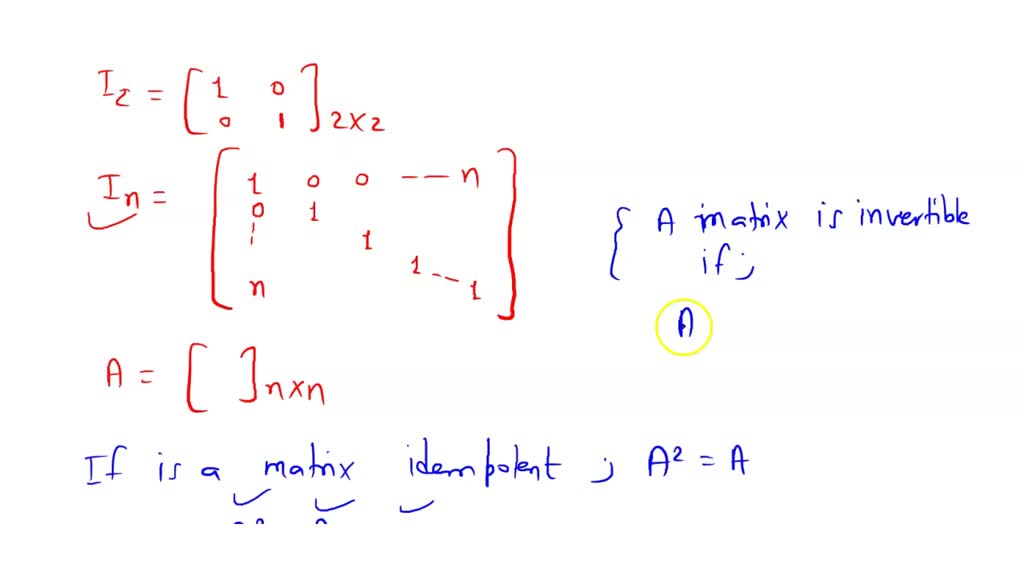 I2 = [ 1 0
0 1 ] 2x2
In = [ 1 0 0 --- n
0 1
1
1 --- 1
n ]
{ A matrix is invertible
if;
A
A = [ ] nxn
If is a matrix idempotent ; A² = A